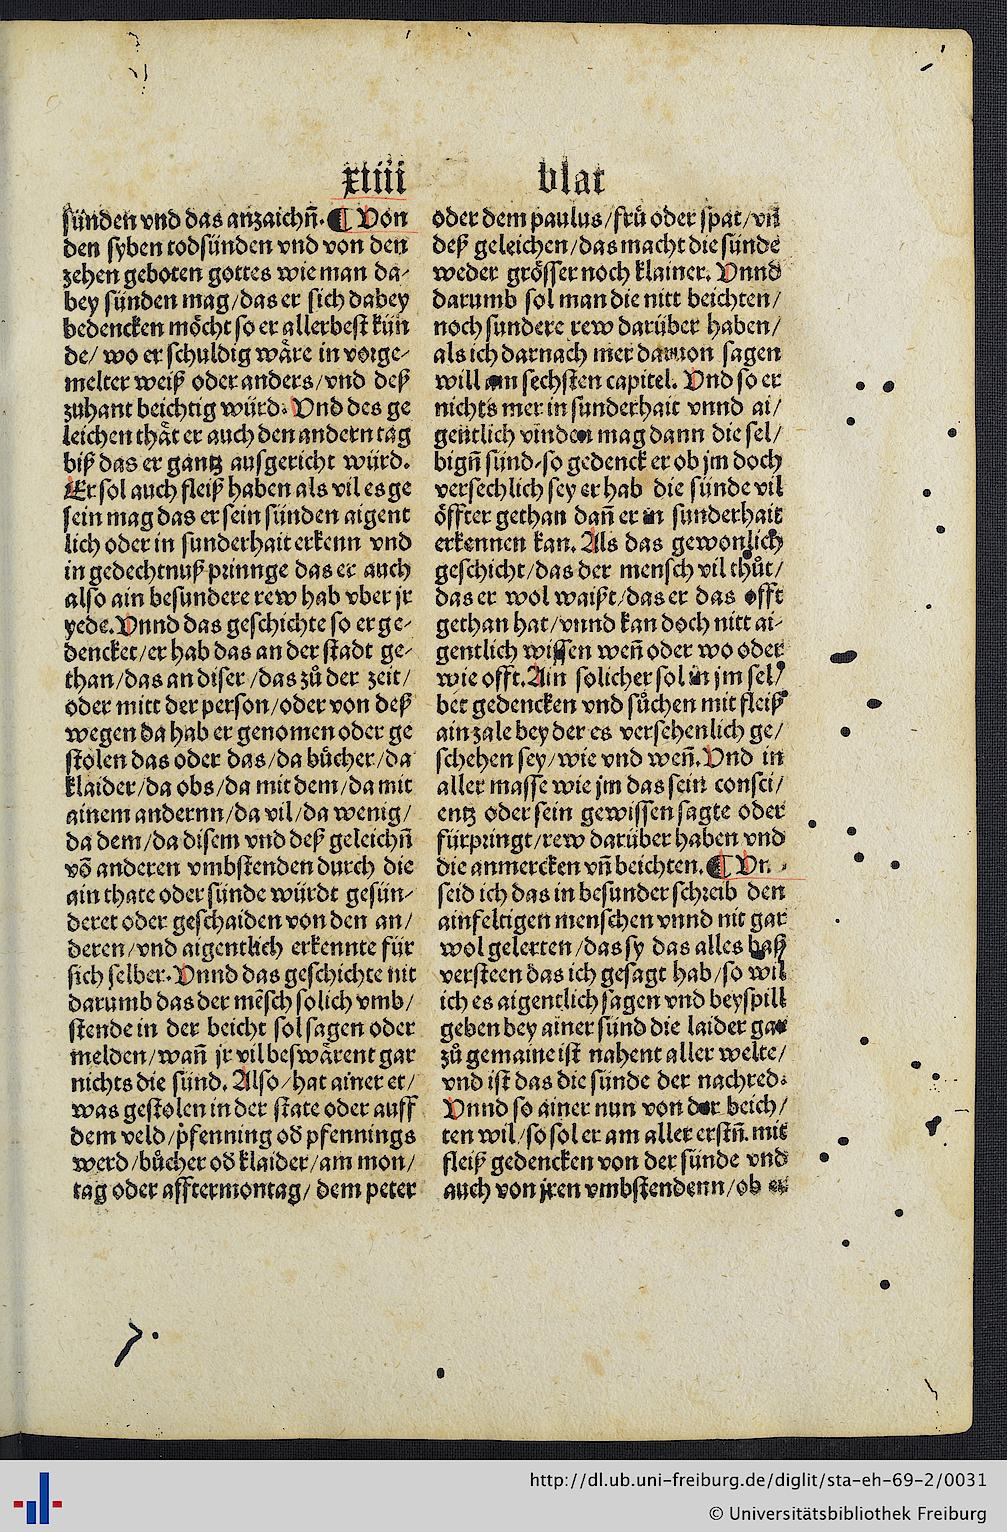 xiiii blat
sünden vnd das anzaichñ. ¶ Von
den syben todsünden vnd von den
zehen geboten gottes wie man da-
bey sünden mag/das er sich dabey
bedencken möcht so er allerbest kün
de/ wo er schuldig wäre in vorge-
melter weiß oder anders/vnd deß
zuhant beichtig würd. Vnd des ge
leichen thät er auch den andern tag
biß das er gantz ausgericht würd.
Er sol auch fleiß haben als vil es ge
sein mag das er sein sünden aigent
lich oder in sunderhait erkenn vnd
in gedechtnuß prinnge das er auch
also ain besundere rew hab vber jr
yede. Vnnd das geschichte so er ge-
dencket/er hab das an der stadt ge-
than/das an diser/das zů der zeit/
oder mitt der person/oder von deß
wegen da hab er genomen oder ge
stolen das oder das/da bücher/da
klaider/da obs/da mit dem/da mit
ainem andernn/da vil/da wenig/
da dem/da disem vnd deß geleichñ
võ anderen vmbstenden durch die
ain thate oder sünde würdt gesün-
deret oder geschaiden von den an/
deren/vnd aigentlich erkennte für
sich selber. Vnnd das geschichte nit
darumb das der mẽsch solich vmb/
stende in der beicht sol sagen oder
melden/wañ jr vil beswärent gar
nichts die sünd. Also/hat ainer et/
was gestolen in der stäte oder auff
dem veld/pfenning od pfennings
werd/bücher od klaider/am mon/
tag oder afftermontag/ dem peter
oder dem paulus/frü oder spat/vñ
deß geleichen/das macht die sünde
weder grösser noch klainer. Vnnd
darumb sol man die nitt beichten/
noch sundere rew darüber haben/
als ich darnach mer dauon sagen
will am sechsten capitel. Vnd so er
nichts mer in sunderhait vnnd ai/
gentlich vinden mag dann die sel/
bigñ sünd/so gedenck er ob jm doch
versechlich sey er hab die sünde vil
öffter gethan dañ er in sunderhait
erkennen kan. Als das gewonlich
geschicht/das der mensch vil thůt/
das er wol waißt/das er das offt
gethan hat/vnnd kan doch nitt ai-
gentlich wissen weñ oder wo oder
wie offt. Ain solicher sol in jm sel/
ber gedencken vnd sůchen mit fleiß
ain zale bey der es versehenlich ge/
schehen sey/wie vnd weñ. Vnd in
aller masse wie jm das sein consci/
entz oder sein gewissen sagte oder
fürpringt/rew darüber haben vnd
die anmercken vñ beichten. ¶ Vn
seid ich das in besunder schreib den
ainfeltigen menschen vnnd nit gar
wol gelerten/das sy das alles baß
versteen das ich gesagt hab/so wil
ich es aigentlich sagen vnd beyspill
geben bey ainer sünd die laider gar
zů gemaine ist nahent aller welte/
vnd ist das die sünde der nachred.
Vnnd so ainer nun von der beich/
ten wil/so sol er am aller erstñ mit
fleiß gedencken von der sünde vnd
auch von jren vmbstendenn/ob er
http://dl.ub.uni-freiburg.de/diglit/sta-eh-69-2/0031
© Universitätsbibliothek Freiburg